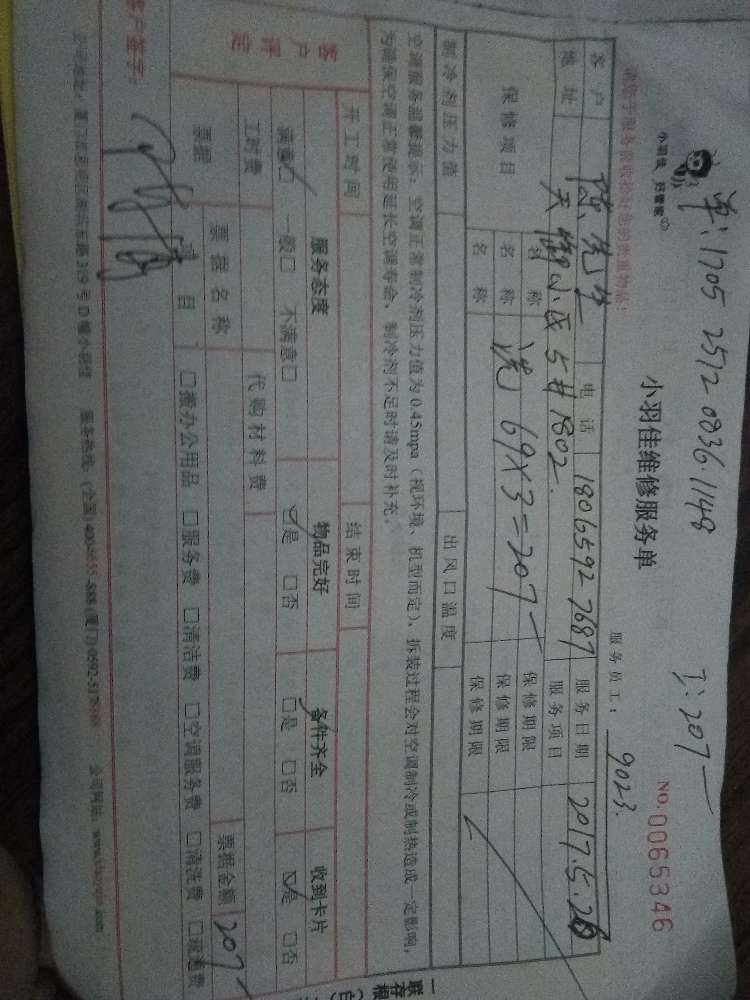 单:1705 2512 0836.1148
T:207一
小羽佳 好管家
小羽佳维修服务单
NO.0065346
服务员工: 9023.
客户 陈先生 电话 18065927687 服务日期 2017.5.20
地址 天湖小区5#1802. 服务项目
保修项目 名称 保修期限
名称 洗 69×3=207一 保修期限
名称 保修期限
制冷剂压力值 出风口温度
空调服务温馨提示:空调正常制冷剂压力值为0.45mpa(视环境、机型而定),拆装过程会对空调制冷或制热造成一定影响,
为确保空调正常使用延长空调寿命,制冷剂不足时请及时补充。
开工时间 结束时间
客户评定 服务态度 物品完好 备件齐全 收到卡片
满意□ 一般□ 不满意□ □是 □否 □是 □否 □是 □否
工时费 代购材料费
票据 票据名称 票据金额 207一
项目 □搬办公用品 □服务费 □清洁费 □空调服务费 □清洗费 □疏通费
客户签字:
319号D幢小羽佳 服务热线:(全国)
公司网址: